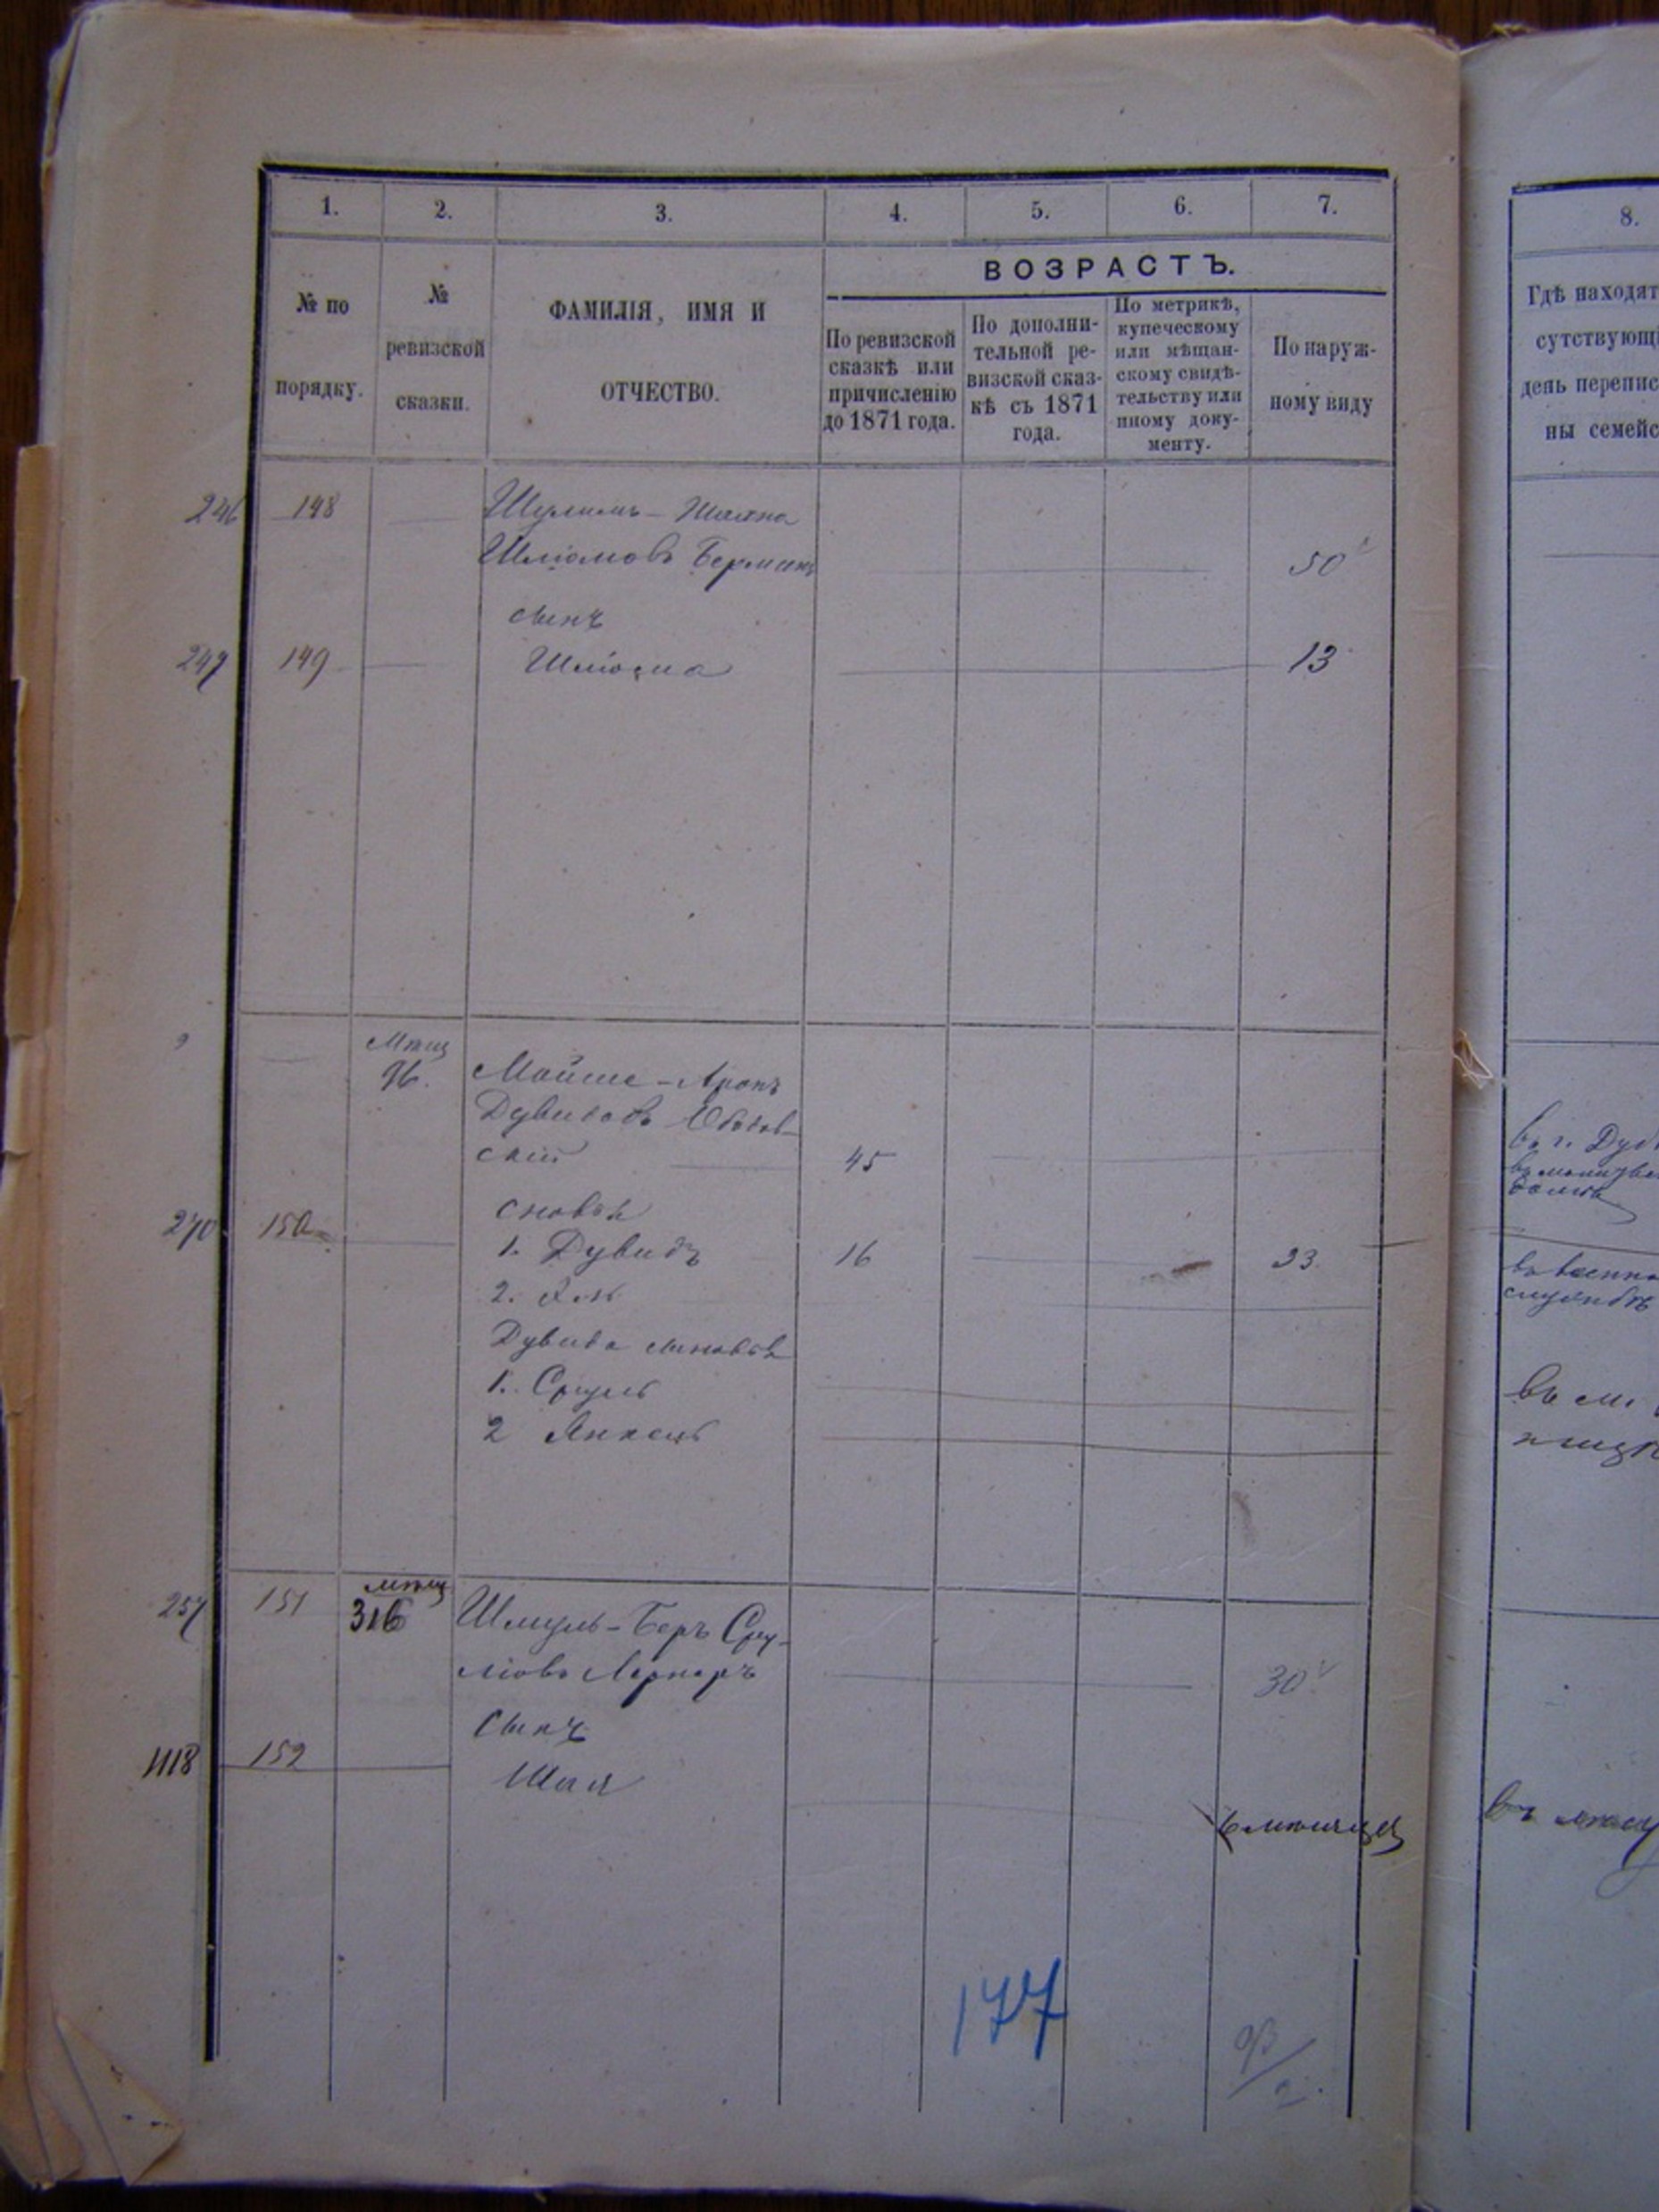 1.
2.
3.
4.
5.
6.
7.
8.
№ по
порядку.
№
ревизской
сказки.
ФАМИЛІЯ, ИМЯ И
ОТЧЕСТВО.
ВОЗРАСТЪ.
По ревизской
сказкѣ или
причисленію
до 1871 года.
По дополни-
тельной ре-
визской сказ-
кѣ съ 1871
года.
По метрикѣ,
купеческому
или мѣщан-
скому свидѣ-
тельству или
иному доку-
менту.
По наруж-
ному виду
Гдѣ находят
сутствующі
день перепис
ны семейс
246 148 Шулимъ-
Шліомовъ Берман 50
сынъ
247 149 Шліома 13
Мѣщ
96. Мойше-Аронъ
Дувидовъ
скій 45
сновья
270 150 1. Дувидъ 16 23
2.
Дувида сыновья
1. Сруль
2 Янкель
въ г.
въ военно
службѣ
въ м.
мѣщ
257 151 316 Шмуль-Беръ Сру-
ліовъ Лернеръ 30
Сынъ
1118 152 Шая
6 мѣсяцев
въ
177